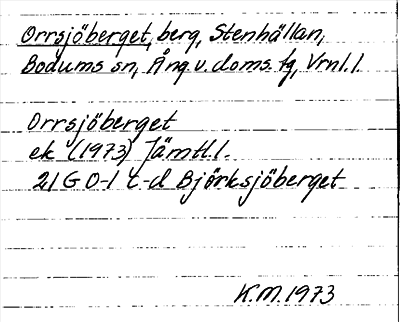 Orrsjöberget, berg, Stenhällan,
Bodums sn, Ång v. doms. fg, Vrnl. l.
Orrsjöberget
ek (1973) Jämtl. l.
21G 0-1 c-d Björksjöberget
K.M. 1973